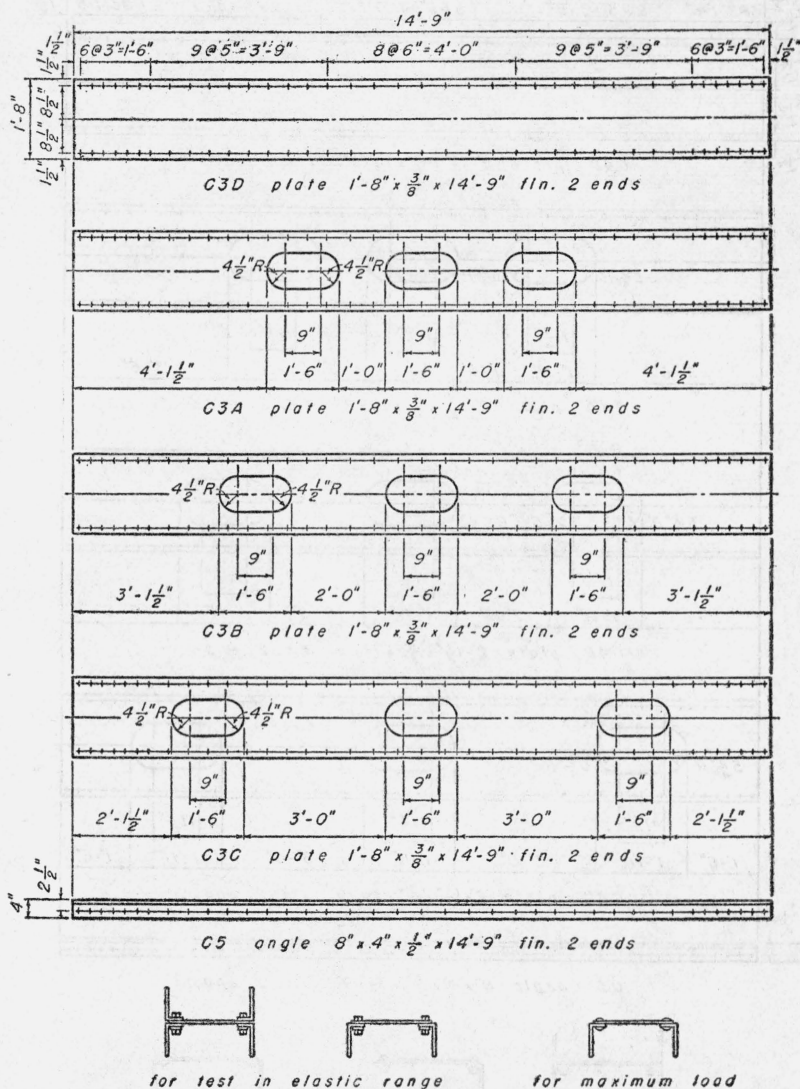 14'-9"
1 1/2" 6@3"=1'-6" 9@5"=3'-9" 8@6"=4'-0" 9@5"=3'-9" 6@3"=1'-6" 1 1/2"
1 1/2"
1'-8" 8 1/2" 8 1/2"
1 1/2"
C3D plate 1'-8" x 3/8" x 14'-9" fin. 2 ends
4 1/2"R 4 1/2"R
9" 9" 9"
4'-1 1/2" 1'-6" 1'-0" 1'-6" 1'-0" 1'-6" 4'-1 1/2"
C3A plate 1'-8" x 3/8" x 14'-9" fin. 2 ends
4 1/2"R 4 1/2"R
9" 9" 9"
3'-1 1/2" 1'-6" 2'-0" 1'-6" 2'-0" 1'-6" 3'-1 1/2"
C3B plate 1'-8" x 3/8" x 14'-9" fin. 2 ends
4 1/2"R 4 1/2"R
9" 9" 9"
2'-1 1/2" 1'-6" 3'-0" 1'-6" 3'-0" 1'-6" 2'-1 1/2"
C3C plate 1'-8" x 3/8" x 14'-9" fin. 2 ends
4" 2 1/2"
C5 angle 8" x 4" x 1/2" x 14'-9" fin. 2 ends
for test in elastic range for maximum load